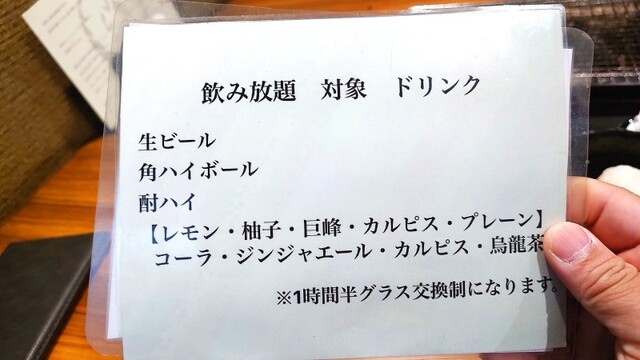 飲み放題 対象 ドリンク
生ビール
角ハイボール
酎ハイ
【レモン・柚子・巨峰・カルピス・プレーン】
コーラ・ジンジャエール・カルピス・烏龍茶
※1時間半グラス交換制になります。